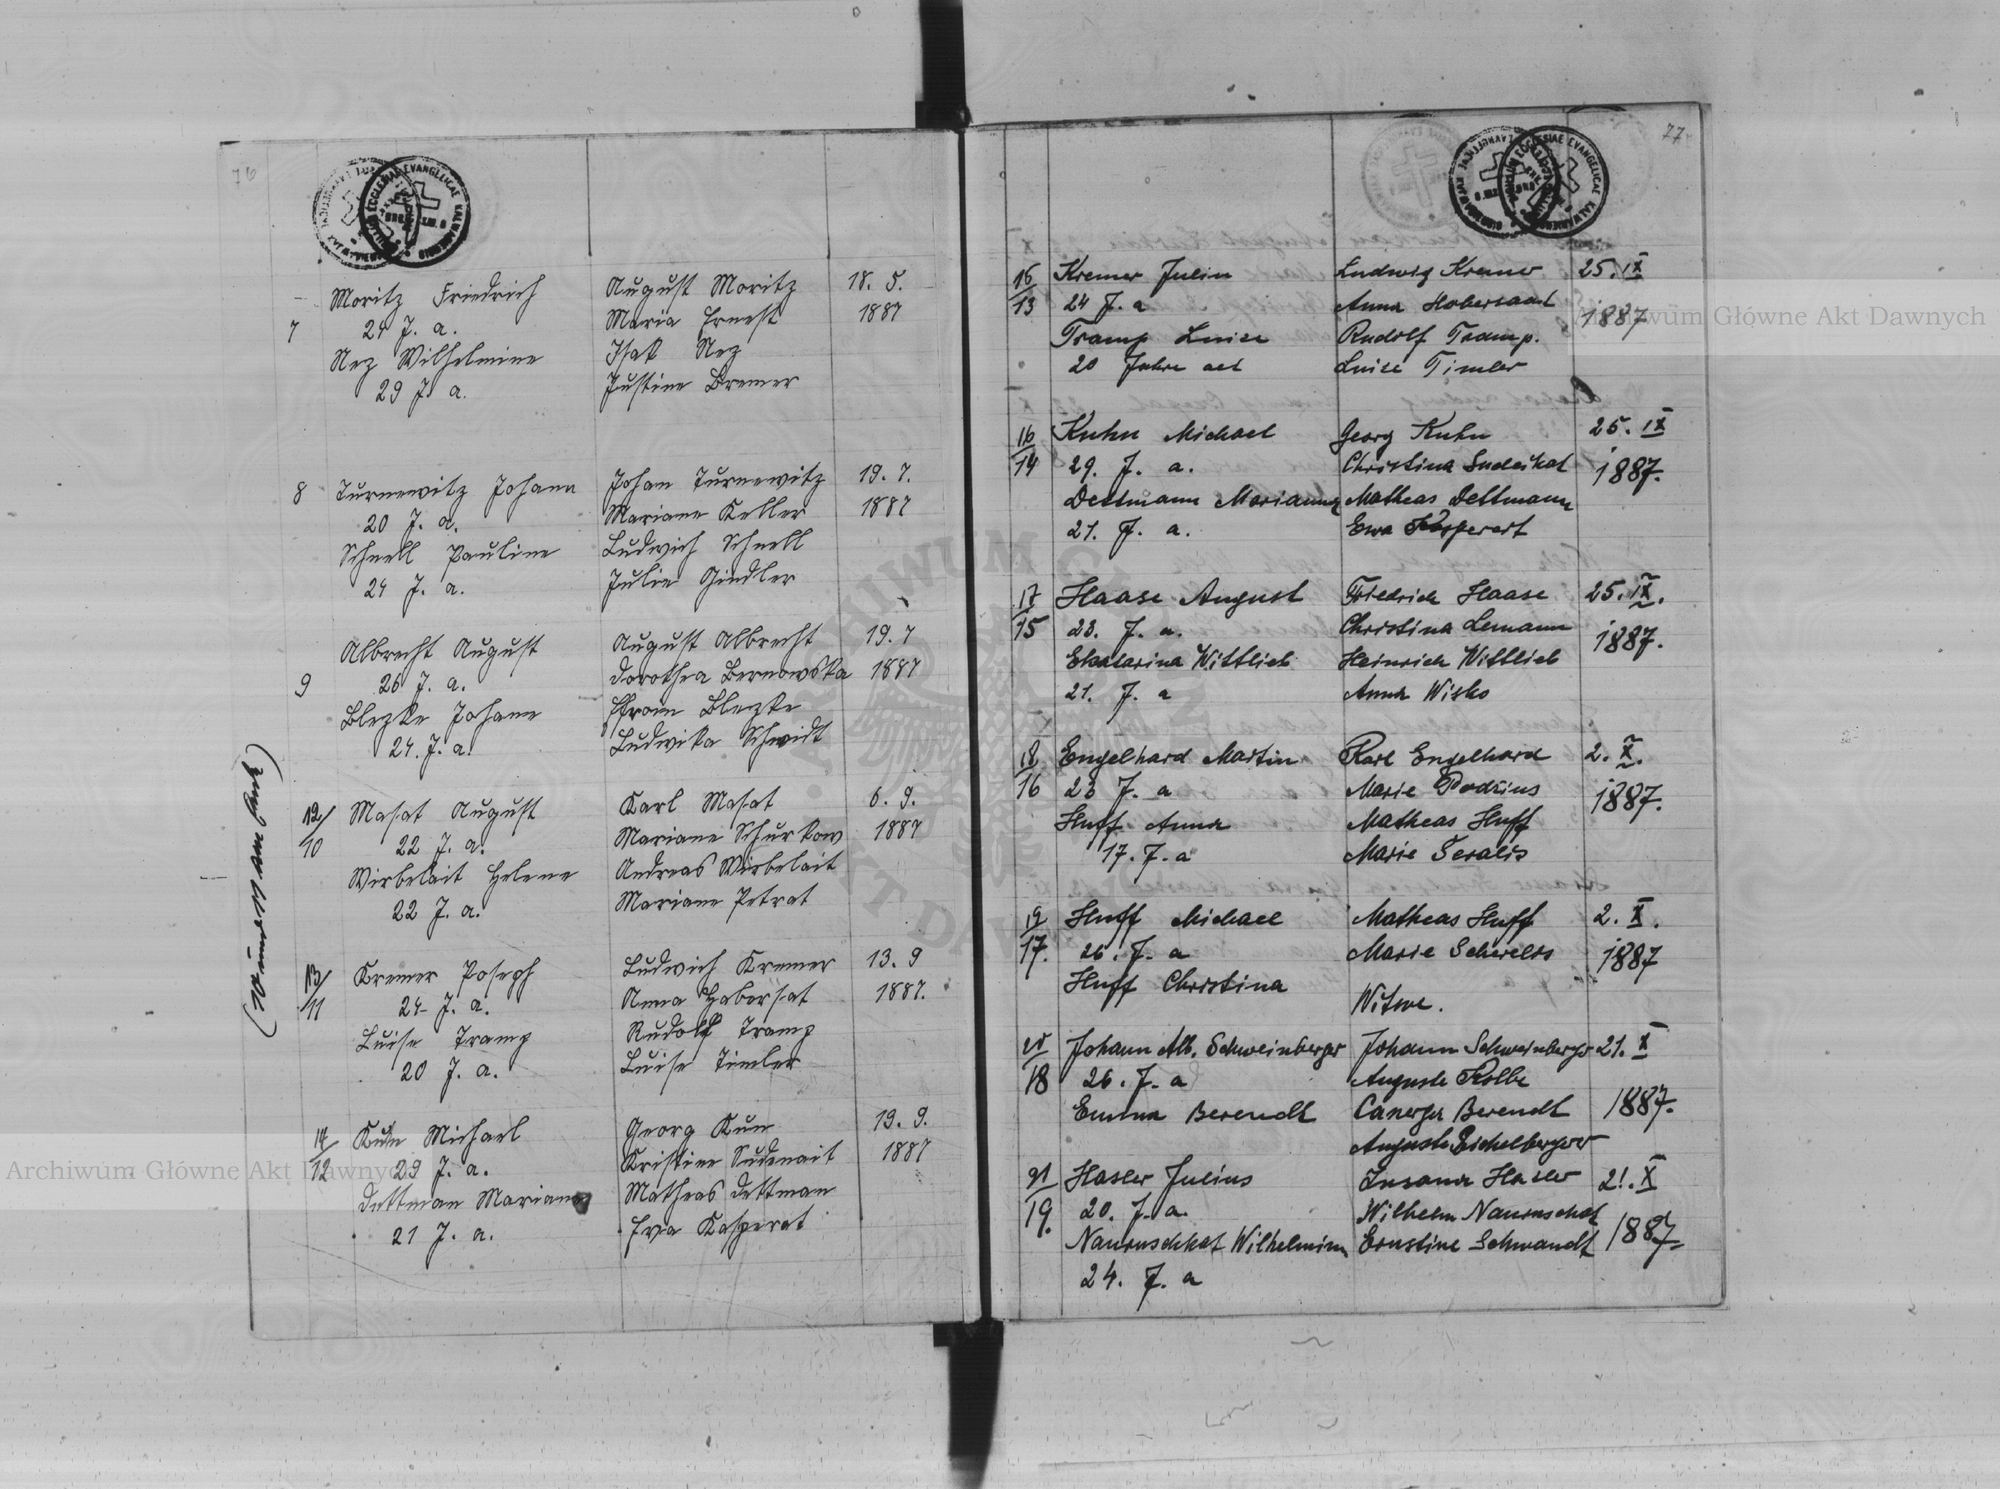 76
7
Moritz Friedrich
24 J. a.
Nez Wilhelmine
29 J. a.
August Moritz
Maria Ernest
Isak Nez
Justine Bremer
18. 5.
1887
8
Turnewitz Johann
20 J. a.
Schnell Pauline
24 J. a.
Johan Turnewitz
Mariane Keller
Ludwich Schnell
Julie Gindler
19. 7.
1887
9
Albrecht August
26 J. a.
Blezke Johane
24. J. a.
August Albrecht
Dorothea Bernowska
Efroim Blezke
Ludwika Schmidt
19. 7
1887
12/
10
Masat August
22 J. a.
Wirbelait Helene
22 J. a.
Karl Masat
Mariane Schurkow
Andreas Wirbelait
Mariane Petrat
6. 9.
1887
13/
11
Kremer Joseph
24- J. a.
Luise Tramp
20 J. a.
Ludwich Kremer
Anna Habersat
Rudolf Tramp
Luise Timler
13. 9
1887.
14/
12
Kuhn Michael
29 J. a.
Dettman Mariana
21 J. a.
Georg Kun
Kristine Sudenait
Matheas Dettman
Eva Kasperat
19. 9.
1887
77
15
13
Kremer Julin
24 J. a
Tramp Luise
20 Jahre alt
Ludwig Kremer
Anna Habersaat
Rudolf Tramp.
Luise Timler
25. IX
1887
16
14
Kuhn Michael
29. J. a.
Dettmann Marianna
21. J. a.
Georg Kuhn
Christina Sudeikat
Matheas Dettmann
Ewa Kasperert
25. IX
1887.
17
15
Haase August
23. J. a.
Ekatarina Wittlieb
21. J. a
Friedrich Haase
Christina Lemann
Heinrich Wittlieb
Anna Wisko
25. IX.
1887.
18
16
Engelhard Martin
23 J. a
Huff Anna
17. J. a
Karl Engelhard
Marie Podzius
Matheas Huff
Marie Seralis
2. X.
1887.
19
17.
Huff Michael
26. J. a
Huff Christina
Matheas Huff
Marie
Witwe.
2. X.
1887
20
18
Johann Alb. Schweinberger
26. J. a
Emma Berendt
Johann Schweinberger
Auguste Kolbe
Berendt
Auguste Eichelberger
21. X
1887.
21
19.
Hasler Julius
20. J. a.
Naunuschkat Wilhelmina
24. J. a
Susana Hasler
Wilhelm Naunuschat
Ernstine Schwandt
21. X
1887
Archiwum Główne Akt Dawnych
Archiwum Główne Akt Dawnych